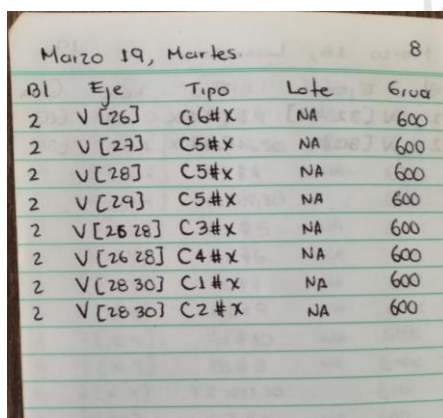 Marzo 19, Martes. 8
Bl Eje Tipo Lote Grua
2 V [26] C6#X NA 600
2 V [27] C5#X NA 600
2 V [28] C5#X NA 600
2 V [29] C5#X NA 600
2 V [26 28] C3#X NA 600
2 V [26 28] C4#X NA 600
2 V [28 30] C1#X NA 600
2 V [28 30] C2#X NA 600